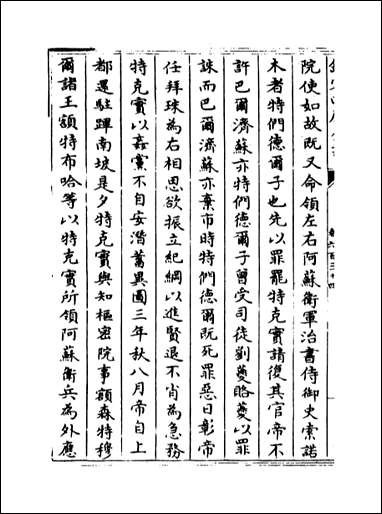 院使如故既又命領左右阿蘇衛軍治書侍御史索諾
木者特們德爾子也先以罪罷特克實請復其官帝不
許巴爾濟蘇亦特們德爾子曾受司徒劉夔賂夔以罪
誅而巴爾濟蘇亦棄市時特們德爾既死罪惡日彰帝
任拜珠為右相思欲振立紀綱以進賢退不肖為急務
特克實以姦黨不自安潛蓄異圖三年秋八月帝自上
都還駐蹕南坡是夕特克實與知樞密院事額森特穆
爾諸王額特布哈等以特克實所領阿蘇衛兵為外應